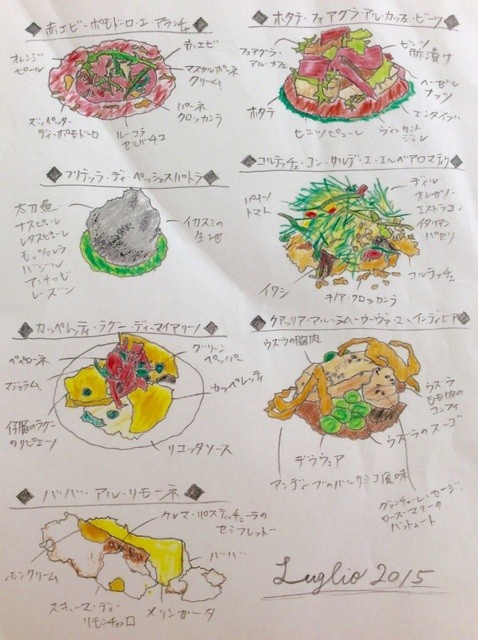 赤エビ・ポモドーロ・エ・アランチャ
オレンジ
ピール
赤エビ
マスカルポーネ
クリーム
パーネ
クロッカンテ
ズッペッタ・
ディ・ポモドーロ
ルーコラ
セルバチコ
ホタテ・フォアグラ・アル・カッフェ・ビーツ
フォアグラ・
アル・カッフェ
ビーツ
酢漬け
ヘーゼル
ナッツ
エンダイブ
ホタテ
ビーツピューレ
ヴィンサント
ジュレ
フリテッラ・ディ・ペッシェスパトラ
太刀魚
ナスピューレ
レタスピューレ
モッツァレラ
バジール
アンチョビ
レーズン
イカスミの
生地
コルテッチェ・コン・サルデ・エ・エルベアロマティケ
パキーノ
トマト
ディル
オレガノ
エストラゴン
イタリアン
パセリ
コルテッチェ
イワシ
キノア・クロッカンテ
カッペレッティ・ラグー・ディ・マイアリーノ
ペペローネ
マジョラム
グリーン
ペッパー
カッペレッティ
仔豚のラグー
のリピエーノ
リコッタソース
クアッリア・アル・ラム・ウーヴァ・エ・インディビア
ウズラの胸肉
ウズラ
もも肉の
コンフィ
ウズラのスーゴ
デラウェア
アンディーブのバルサミコ風味
グランチューレ・セーデ・
ローズマリーの
バットゥート
バ・バ・アル・リモーネ
クレマ・パスティッチェーラの
セミフレッド
バ・バ
レモンクリーム
スキューマ・ディ・
リモンチェロ
メリンガータ
Luglio 2015